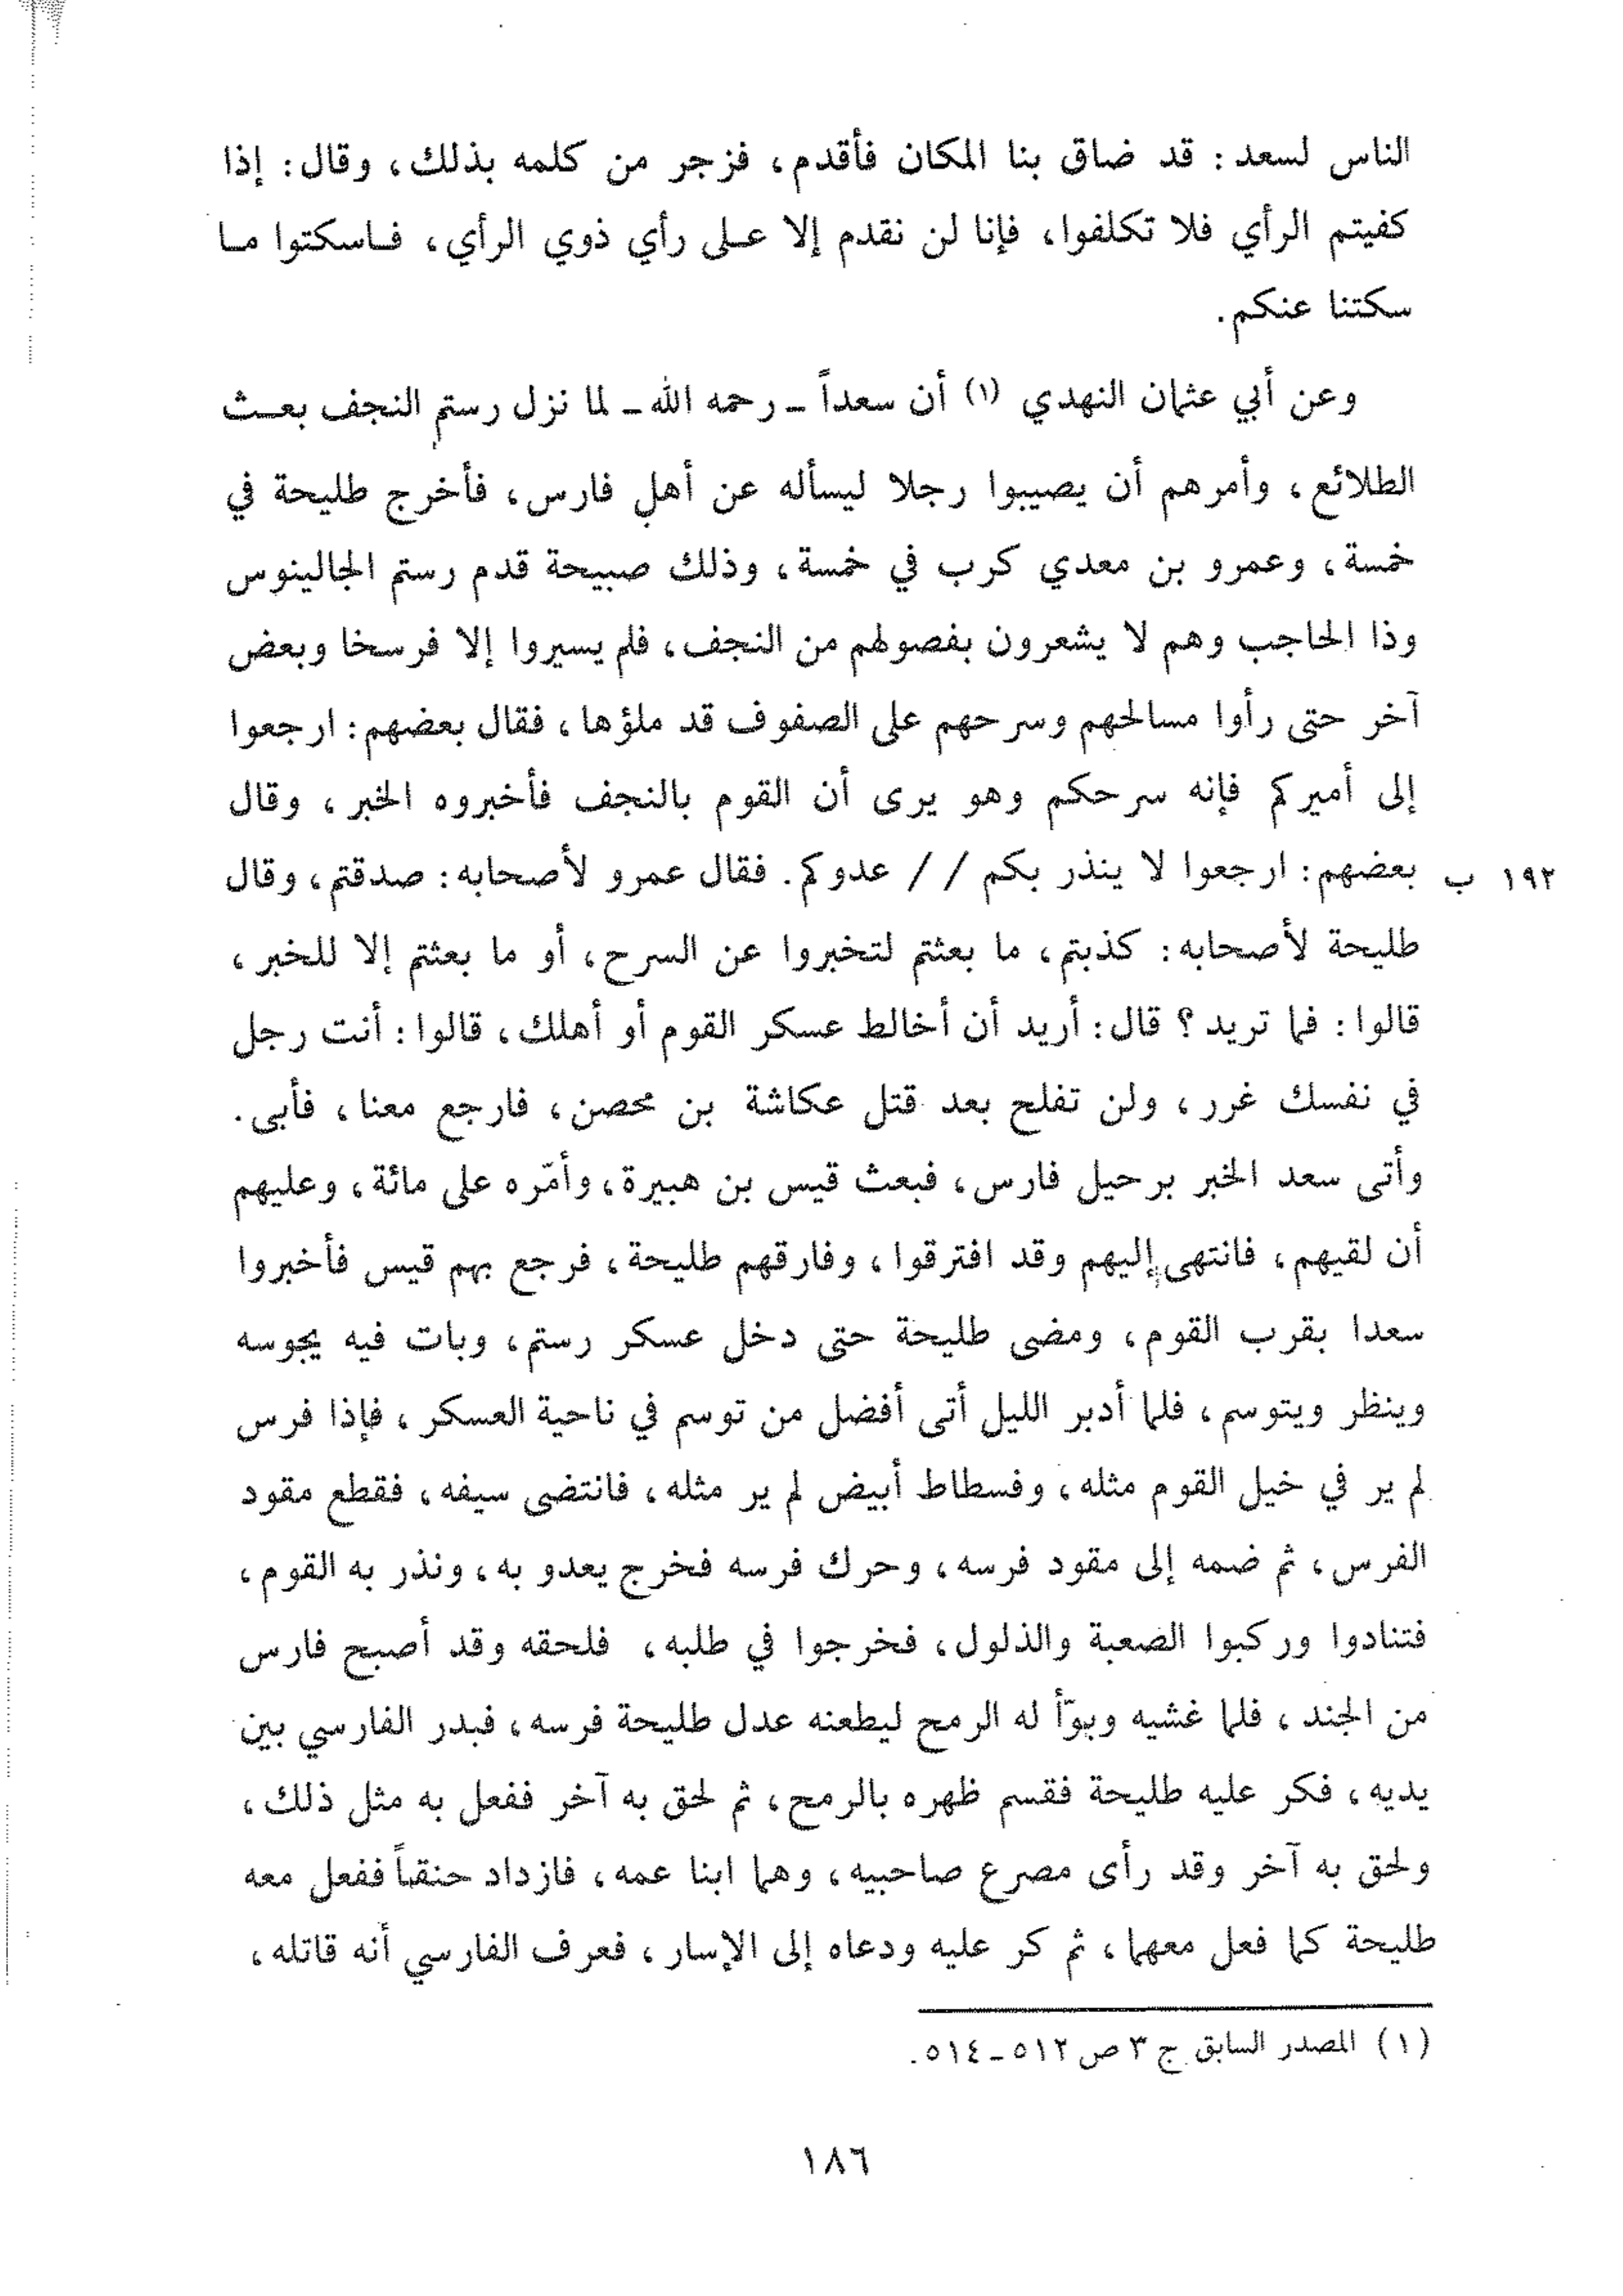 الناس لسعد : قد ضاق بنا المكان فأقدم ، فزجر من كلمه بذلك ، وقال : إذا
كفيتم الرأي فلا تكلفوا ، فإنا لن نقدم إلا على رأي ذوي الرأي ، فاسكتوا ما
سكتنا عنكم .
وعن أبي عثمان النهدي (١) أن سعداً ـ رحمه الله ـ لما نزل رستم النجف بعث
الطلائع ، وأمرهم أن يصيبوا رجلا ليسأله عن أهل فارس ، فأخرج طليحة في
خمسة ، وعمرو بن معدي كرب في خمسة ، وذلك صبيحة قدم رستم الجالينوس
وذا الحاجب وهم لا يشعرون بفصولهم من النجف ، فلم يسيروا إلا فرسخا وبعض
آخر حتى رأوا مسالحهم وسرحهم على الصفوف قد ملؤها ، فقال بعضهم : ارجعوا
إلى أميركم فإنه سرحكم وهو يرى أن القوم بالنجف فأخبروه الخبر ، وقال
بعضهم : ارجعوا لا ينذر بكم // عدوكم . فقال عمرو لأصحابه : صدقتم ، وقال
١٩٢ ب
طليحة لأصحابه : كذبتم ، ما بعثتم لتخبروا عن السرح ، أو ما بعثتم إلا للخبر ،
قالوا : فما تريد ؟ قال : أريد أن أخالط عسكر القوم أو أهلك ، قالوا : أنت رجل
في نفسك غرر ، ولن تفلح بعد قتل عكاشة بن محصن ، فارجع معنا ، فأبى .
وأتى سعد الخبر برحيل فارس ، فبعث قيس بن هبيرة ، وأمّره على مائة ، وعليهم
أن لقيهم ، فانتهى إليهم وقد افترقوا ، وفارقهم طليحة ، فرجع بهم قيس فأخبروا
سعدا بقرب القوم ، ومضى طليحة حتى دخل عسكر رستم ، وبات فيه يجوسه
وينظر ويتوسم ، فلما أدبر الليل أتى أفضل من توسم في ناحية العسكر ، فإذا فرس
لم ير في خيل القوم مثله ، وفسطاط أبيض لم ير مثله ، فانتضى سيفه ، فقطع مقود
الفرس ، ثم ضمه إلى مقود فرسه ، وحرك فرسه فخرج يعدو به ، ونذر به القوم ،
فتنادوا وركبوا الصعبة والذلول ، فخرجوا في طلبه ، فلحقه وقد أصبح فارس
من الجند ، فلما غشيه وبوّأ له الرمح ليطعنه عدل طليحة فرسه ، فبدر الفارسي بين
يديه ، فكر عليه طليحة فقسم ظهره بالرمح ، ثم لحق به آخر ففعل به مثل ذلك ،
ولحق به آخر وقد رأى مصرع صاحبيه ، وهما ابنا عمه ، فازداد حنقاً ففعل معه
طليحة كما فعل معهما ، ثم كر عليه ودعاه إلى الإسار ، فعرف الفارسي أنه قاتله ،
(١) المصدر السابق ج ٣ ص ٥١٢ ـ ٥١٤ .
١٨٦